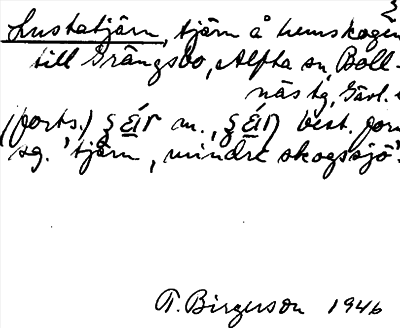 Lustatjärn, tjärn å hemskogen
till Grängsbo, Alfta sn, Boll-
näs tg, Gävl.
(forts.) m., best. form
sg. 'tjärn, mindre skogssjö'.
T. Birgerson 1946